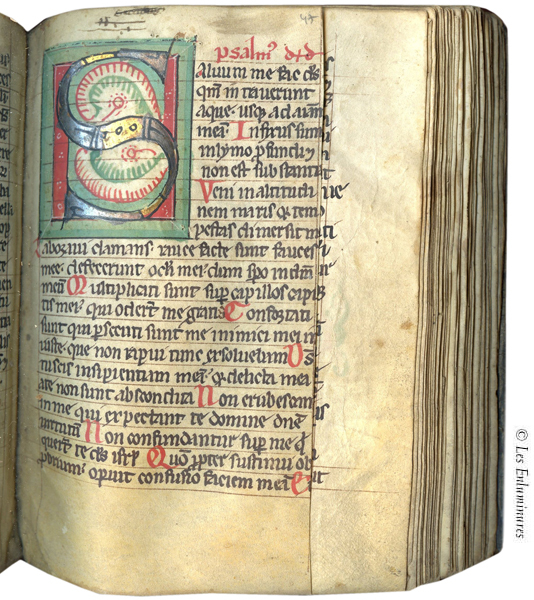 psalm⁹ d+d
S
Aluum me fac d̅s
qm̅ intrauerunt
aque· usq; ad aīam
meā Infixus sum
in lymo p̄fundi &
non est substantia
Veni in altitudi ne
nem maris & tem
pestas dimersit me
Laboraui clamans· rauce facte sunt fauces
mee· defecerunt oculi mei· dum sp̄o in dm̄
meū Multiplicati sunt sup̄ capillos capi
tis mei· qui oderūt me gratis Confortati
sunt qui p̄secuti sunt me inimici mei in
iuste· que non rapui tunc exsoluebam Ds̄
tu scis insipientiam meā· & delicta mea
a te non sunt abscondita Non erubescant
in me qui expectant te domine dn̄e
uirtutum Non confundantur sup̄ me q̄
querūt te ds̄ isrl̄ Quo p̄pter sustinui ob
p̄brium· op̄uit confusio faciem meā
© Les Enluminures